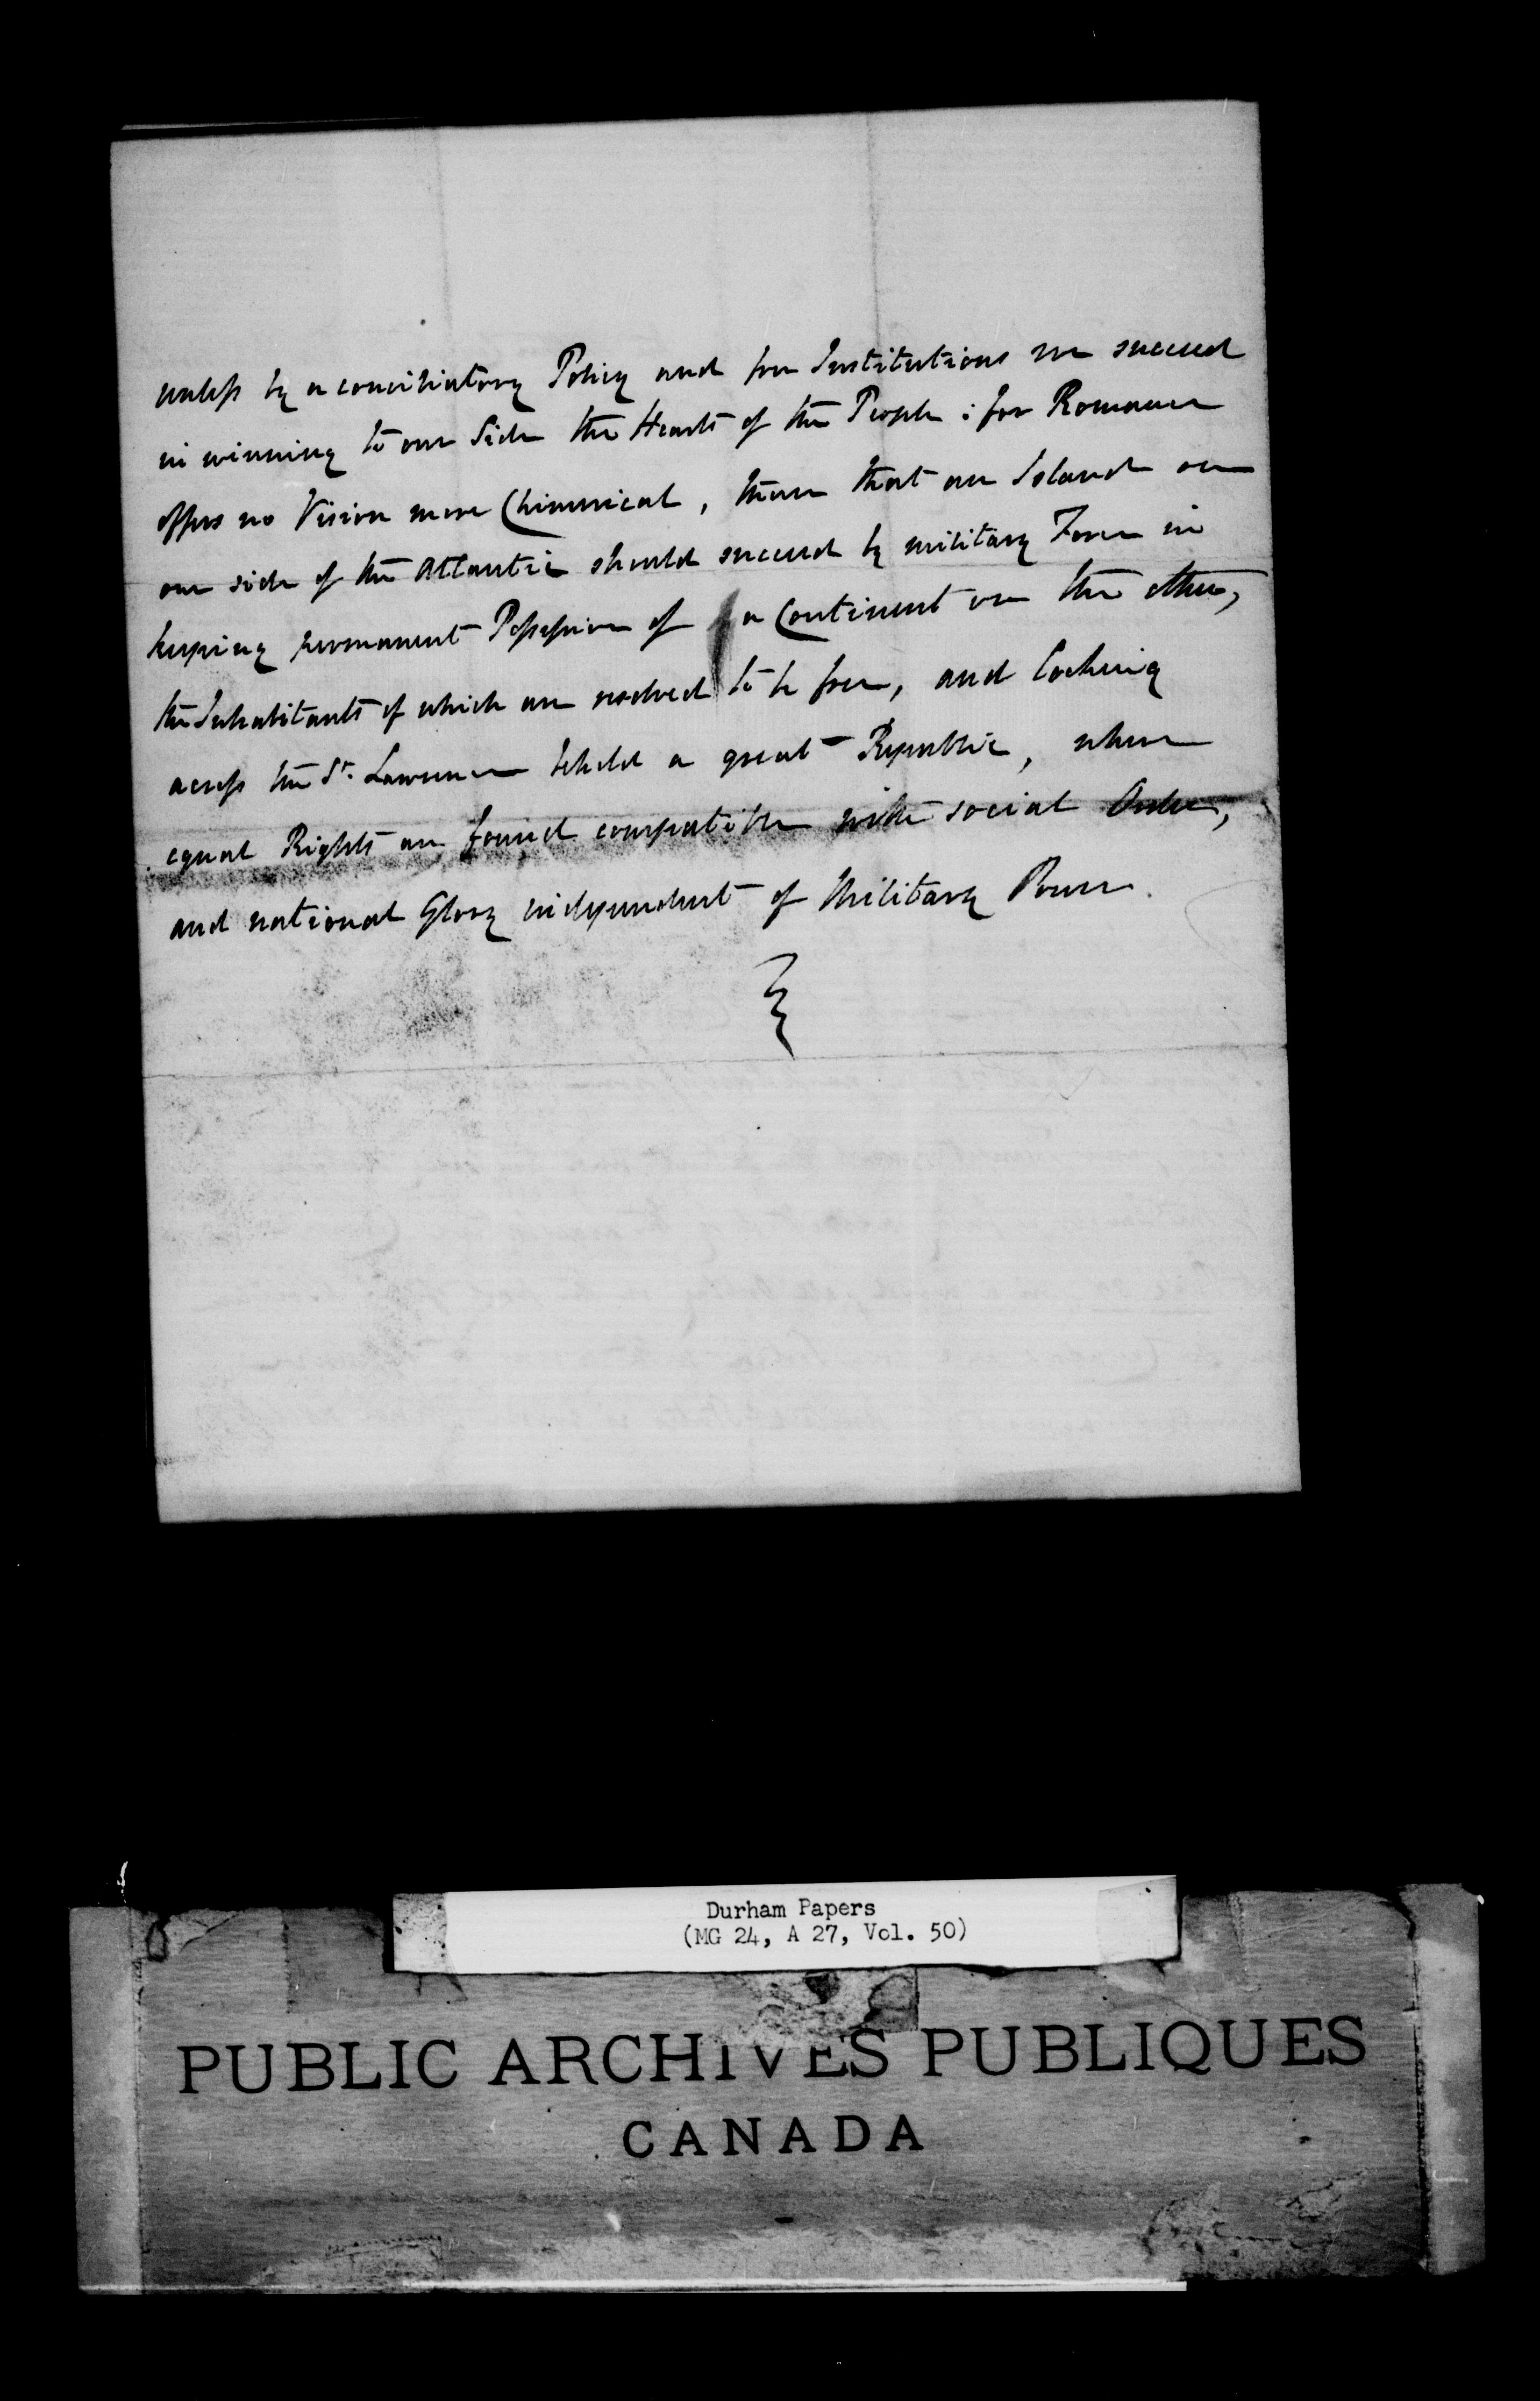 unless by a conciliatory Policy and free Institutions we succeed
in winning to our Side the Hearts of the People : for Romance
offers no Vision more Chimerical, than that an Island on
one side of the Atlantic should succeed by military Force in
keeping permanent Possession of a Continent on the other,
the Inhabitants of which are resolved to be free, and looking
across the St. Lawrence behold a great Republic, where
equal Rights are found compatible with social Order,
and national Glory independent of Military Power.
Durham Papers
(MG 24, A 27, Vol. 50)
PUBLIC ARCHIVES PUBLIQUES
CANADA